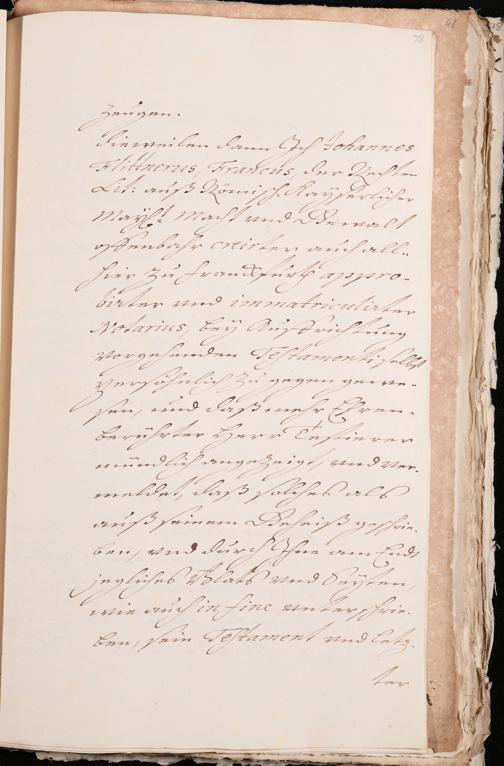 28
Zeugen.
Dieweilen dann Ich Johannes
Flittnerus, Francus, der Rechten
Lit: auß Römisch Kayserlicher
Mayst: Macht und Gewalt
offenbahr creirter auch all-
hier zu Franckfurth appro-
birter und immatriculirter
Notarius, bey Auffrichtung
vorgehenden Testamenti selbst
persöhnlich zu gegen gewe-
sen, und daß mehr Ehren-
berührter Herr Testierer
mündlich angezeigt, und ver-
meldet, daß solches als
auß seinem Geheiß geschrie-
ben, und durch Ihne am End
jegliches Blats und Seyten,
wie auch in fine unterschrie-
ben, sein Testament und letz-
ter